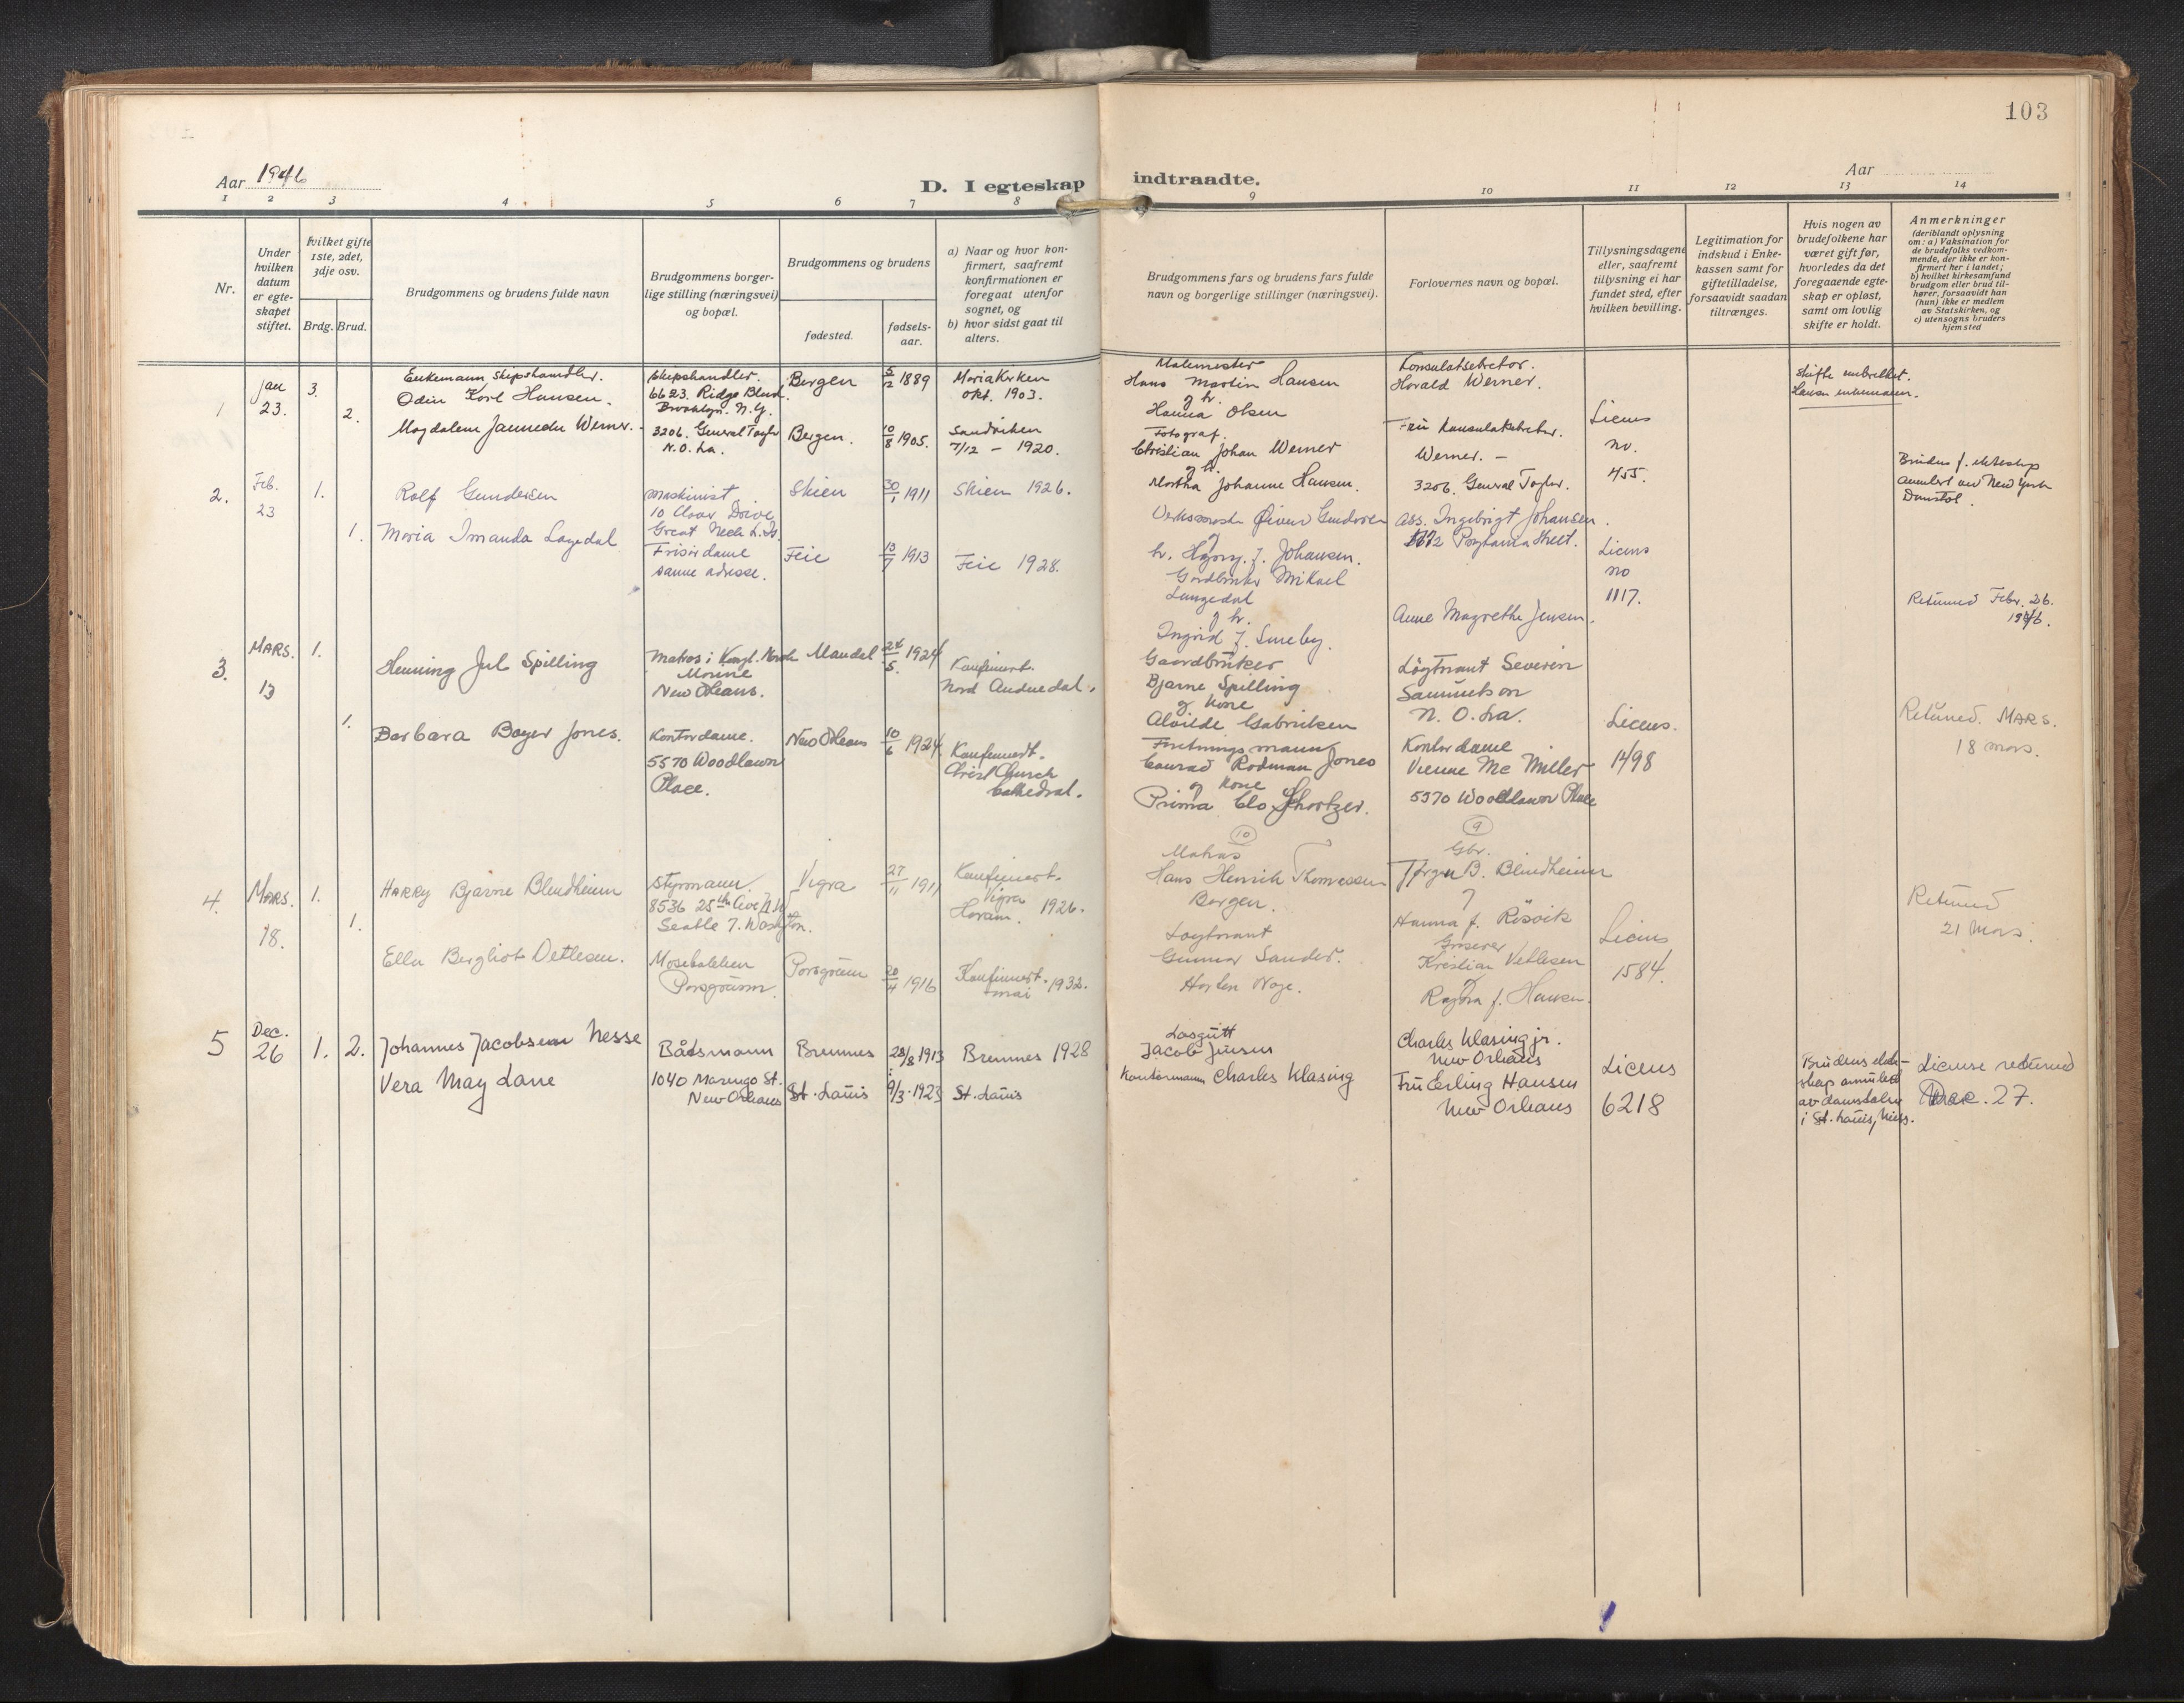 103
Aar 1946
D. I egteskap indtraadte.
Aar
1 2 3 4 5 6 7 8 9 10 11 12 13 14
Nr.
Under hvilken datum er egteskapet stiftet.
hvilket gifte 1ste, 2det, 3dje osv.
Brdg. Brud.
Brudgommens og brudens fulde navn
Brudgommens borgerlige stilling (næringsvei) og bopæl.
Brudgommens og brudens
fødested.
fødselsaar.
a) Naar og hvor konfirmert, saafremt konfirmationen er foregaat utenfor sognet, og
b) hvor sidst gaat til alters.
Brudgommens fars og brudens fars fulde navn og borgerlige stillinger (næringsvei).
Forlovernes navn og bopæl.
Tillysningsdagene eller, saafremt tillysning ei har fundet sted, efter hvilken bevilling.
Legitimation for indskud i Enkekassen samt for giftetilladelse, forsaavidt saadan tiltrænges.
Hvis nogen av brudefolkene har været gift før, hvorledes da det foregaaende egteskap er opløst, samt om lovlig skifte er holdt.
Anmerkninger
(deriblandt oplysning om: a) Vaksination for de brudefolks vedkommende, der ikke er konfirmert her i landet; b) hvilket kirkesamfund brudgom eller brud tilhører, forsaavidt han (hun) ikke er medlem av Statskirken, og c) utensogns bruders hjemsted
1
Jan 23.
3.
2.
Enkemann, Skipshandler.
Odin Karl Hansen.
Magdalene Werner.
Skipshandler.
6623. Ridge Blvd.
Brooklyn. N.Y.
3206. General Taylor
N.O. La.
Bergen
5/12 1889
Bergen.
10/8 1905.
Mariakirken
okt. 1903.
Sandviken
7/12 - 1920.
Malemester
Hans Martin Hansen
og h.
Hanna Olsen
Fotograf.
Christian Johan Werner
og h.
Martha Johanne Hansen.
Konsulatsekretær.
Harald Werner.
Fru Konsulatsekretær.
Werner. -
3206. General Taylor.
Licens
no.
455.
Skifte
Hansen enkemann.
2.
Feb.
23
1.
1.
Rolf Gundersen
Maria Imanda Langedal
Maskinist
10 Drive
Great Neck L.I.
Frisørdame
samme adresse.
Skien
30/1 1911
Feie
13/7 1913
Skien 1926.
Feie 1928.
Gundersen
og
h. J. Johansen.
Gårdbruker Mikael
Langedal
og h.
Ingrid f. Smeby.
Ass. Ingebrigt Johansen.
Street.
Anne Magrethe Jensen.
Licens
no
1117.
Brudens f. ekteskap
annulert ved New York
Domstol.
Returned Febr. 26.
1946.
3.
MARS.
13
1.
1.
Henning Jul Spilling
Barbara Boyer Jones.
Matros i Kongl. Norsk
Marine
New Orleans.
Kontordame.
5570 Woodlawn
Place.
Mandal
24/5. 1924
New Orleans
10/6 1924
Konfirmert.
Nord Audnedal.
Konfirmert.
Christ Church
Cathedral.
Gaardbruker
Bjarne Spilling
og Kone
Alvilde Gabrielsen
Forretningsmann
Conrad Rodman Jones
og Kone
Prima Clo Shortzer.
Løytnant Severin
Samuelson
N. O. La.
Kontordame
Vienne Mc Miller
5570 Woodlawn Place
Licens.
1498
Returned. MARS.
18 mars.
4.
Mars.
18.
1.
1.
HARRY Bjarne Blindheim
Ella Bergliot Detlesen.
Styrmann.
8536 25th Ave N.W.
Seattle 7. Washington.
Porsgrunn.
Vigra
27/11 1911
Porsgrunn
20/4 1916
Konfirmert.
Vigra
Haram. 1926.
Konfirmert.
mai 1932.
10
Matros
Hans Henrik Thomessen
Bergen.
Løytnant
Gunnar Sander.
Horten Noge.
9
Gbr.
Jørgen B. Blindheim
og
Hanna f. Røsvik
Kristian Vetlesen
og
Ragna f. Hansen.
Licens
1584.
Returned
21 Mars.
5
Dec.
26
1. 2.
Johannes Jacobsen Nesse
Vera May Lane
Båtsmann
1040 Marengo St.
New Orleans
Bremnes
28/8 1913
St. Louis
9/3 1923
Bremnes 1928
St. Louis
Losgutt
Jacob Jensen
Kontormann Charles Klasing
Charles Klasing jr.
New Orleans
Fru Erling Hansen
New Orleans
Licens
6218
Brudens ekteskap annulert
av domstolen
i St. Louis, Miss.
License returned
Dec. 27.